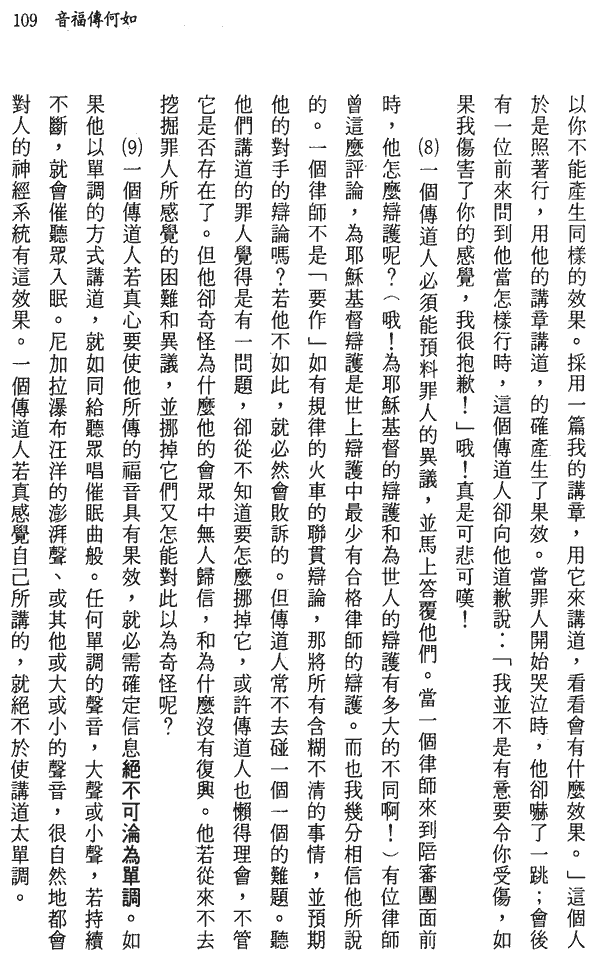 109　音福傳何如
以你不能產生同樣的效果。採用一篇我的講章，用它來講道，看看會有什麼效果。」這個人
於是照著行，用他的講章講道，的確產生了果效。當罪人開始哭泣時，他卻嚇了一跳；會後
有一位前來問到他當怎樣行時，這個傳道人卻向他道歉說：「我並不是有意要令你受傷，如
果我傷害了你的感覺，我很抱歉！」哦！真是可悲可嘆！
⑻一個傳道人必須能預料罪人的異議，並馬上答覆他們。當一個律師來到陪審團面前
時，他怎麼辯護呢？（哦！為耶穌基督的辯護和為世人的辯護有多大的不同啊！）有位律師
曾這麼評論，為耶穌基督辯護是世上辯護中最少有合格律師的辯護。而也我幾分相信他所說
的。一個律師不是「要作」如有規律的火車的聯貫辯論，那將所有含糊不清的事情，並預期
他的對手的辯論嗎？若他不如此，就必然會敗訴的。但傳道人常不去碰一個一個的難題。聽
他們講道的罪人覺得是有一問題，卻從不知道要怎麼挪掉它，或許傳道人也懶得理會，不管
它是否存在了。但他卻奇怪為什麼他的會眾中無人歸信，和為什麼沒有復興。他若從來不去
挖掘罪人所感覺的困難和異議，並挪掉它們又怎能對此以為奇怪呢？
⑼一個傳道人若真心要使他所傳的福音具有果效，就必需確定信息絕不可淪為單調。如
果他以單調的方式講道，就如同給聽眾唱催眠曲般。任何單調的聲音，大聲或小聲，若持續
不斷，就會催聽眾入眠。尼加拉瀑布汪洋的澎湃聲、或其他或大或小的聲音，很自然地都會
對人的神經系統有這效果。一個傳道人若真感覺自己所講的，就絕不於使講道太單調。